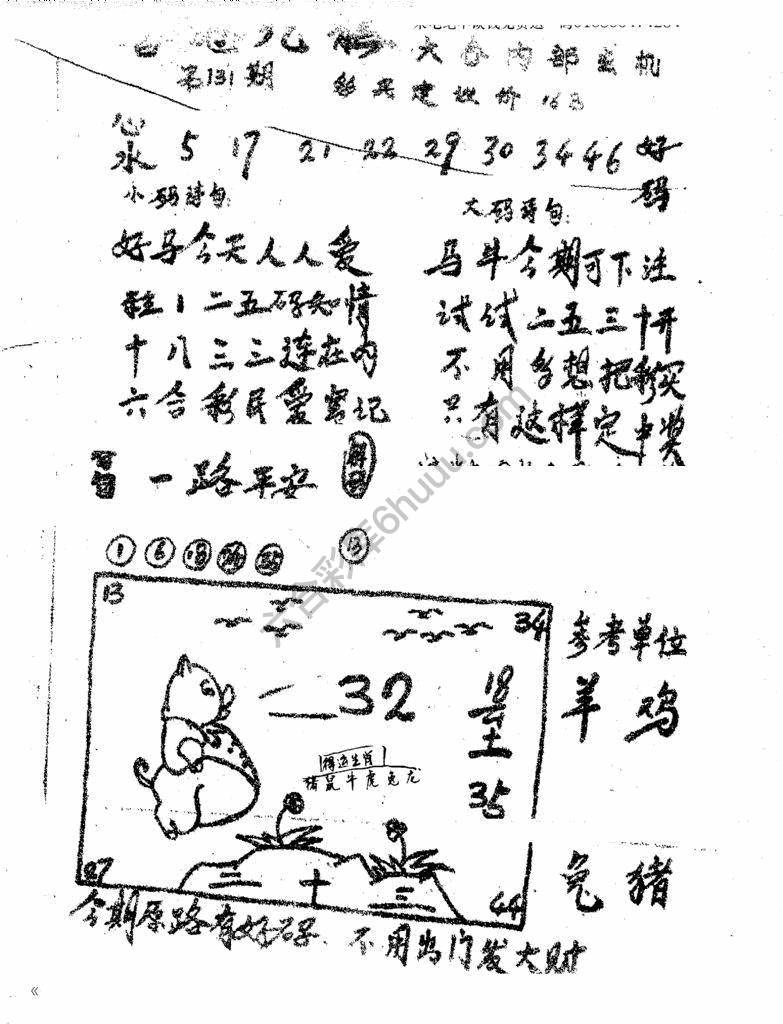 第131期
大合内部玄机
心水 5 17 21 22 29 30 34 46 好码
小码诗句
好马今天人人爱
十八三三连在内
六合彩民爱密记
大码诗句:
马牛今期可下注
试试二五三十开
不用多想把彩买
只有这样定中奖
一路平安
1 6 18 35 13
六合彩库6huuu.com
13 34
32
18
35
精选生肖
猪鼠牛虎兔龙
27 二 十 三 44
参考单位
羊 鸡
兔 猪
今期原路有好码 不用出门发大财
«